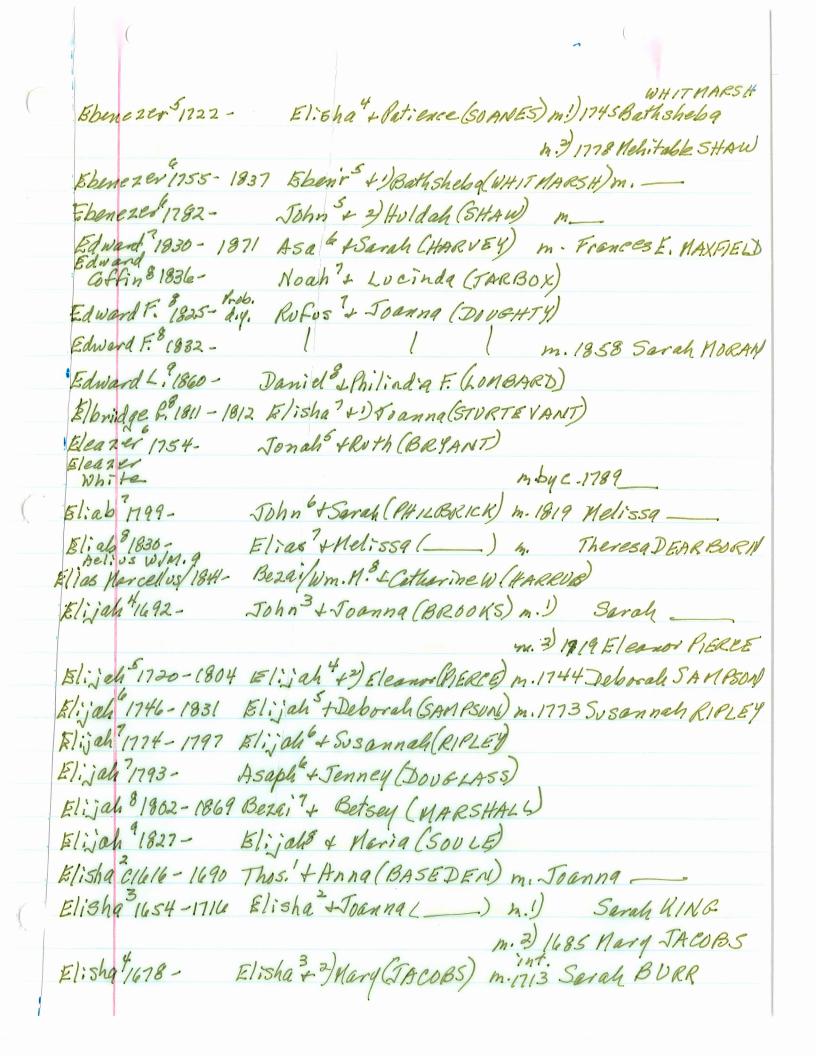 WHITMARSH
Ebenezer⁵ 1722 - Elisha⁴ + Patience (SOANES) m.1) 1745 Bathsheba
m.2) 1778 Mehitable SHAW
Ebenezer⁶ 1755 - 1837 Ebenr⁵ + 1) Bathsheba (WHITMARSH) m. ___
Ebenezer⁶ 1782 - John⁵ + 2) Huldah (SHAW) m ___
Edward⁷ 1830 - 1871 Asa⁶ + Sarah (HARVEY) m. Frances E. MAXFIELD
Edward
Coffin⁸ 1836 - Noah⁷ + Lucinda (TARBOX)
Edward F.⁸ 1825 - Prob. d.y. Rufus⁷ + Joanna (DOUGHTY)
Edward F.⁸ 1832 - | | | m. 1858 Sarah MORAN
Edward L.⁹ 1860 - Daniel⁸ + Philindia F. (LOMBARD)
Elbridge G.⁸ 1811 - 1812 Elisha⁷ + 1) Joanna (STURTEVANT)
Eleazer⁶ 1754 - Jonah⁵ + Ruth (BRYANT)
Eleazer
White m by c. 1789 ___
Eliab⁷ 1799 - John⁶ + Sarah (PHILBRICK) m. 1819 Melissa ___
Eliab⁸ 1830 - Elias⁷ + Melissa (___) m. Theresa DEARBORN
Aelius W/M. 9
Elias Marcellus/1841 - Bezai/Wm. M.⁸ + Catharine W (HARRUB)
Elijah⁴ 1692 - John³ + Joanna (BROOKS) m.1) Sarah ___
m. 2) 1719 Eleanor PIERCE
Elijah⁵ 1720 - 1804 Elijah⁴ + 2) Eleanor (PIERCE) m. 1744 Deborah SAMPSON
Elijah⁶ 1746 - 1831 Elijah⁵ + Deborah (SAMPSON) m. 1773 Susannah RIPLEY
Elijah⁷ 1774 - 1797 Elijah⁶ + Susannah (RIPLEY)
Elijah⁷ 1793 - Asaph⁶ + Jenney (DOUGLASS)
Elijah⁸ 1802 - 1869 Bezai⁷ + Betsey (MARSHALL)
Elijah⁹ 1827 - Elijah⁸ & Maria (SOULE)
Elisha² c1616 - 1690 Thos.¹ + Anna (BASEDEN) m. Joanna ___
Elisha³ 1654 - 1716 Elisha² + Joanna (___) m.1) Sarah KING
m. 2) 1685 Mary JACOBS
Elisha⁴ 1678 - Elisha³ + 2) Mary (JACOBS) int. m. 1713 Sarah BURR